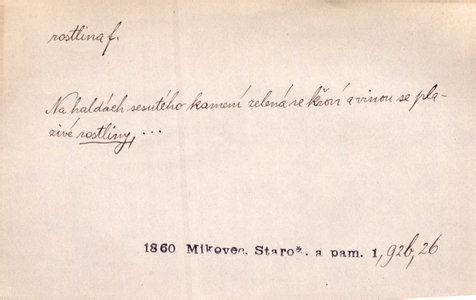 rostlina f.
Na haldách sesutého kamení zelená se křoví a vinou se pla-
zivé rostliny, ...
1860 Mikovec, Starož. a pam. 1, 92b, 26